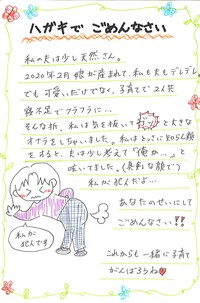 ハガキで ごめんなさい
私の夫は少し天然さん。
2020年2月 娘が産まれて、私も夫もデレデレ。
でも可愛いだけでなく、子育てで2人共
寝不足でフラフラに…
そんな折、私は気を抜いて と大きな
オナラをしちゃいました。私はとっさに知らん顔
をすると、夫は少し考えて「俺か…。」と
呟いてました。(真剣な顔で)
私が犯人だよ…
あなたのせいにして
ごめんなさい!!
私が
犯人です
これからも一緒に子育て
がんばろうね